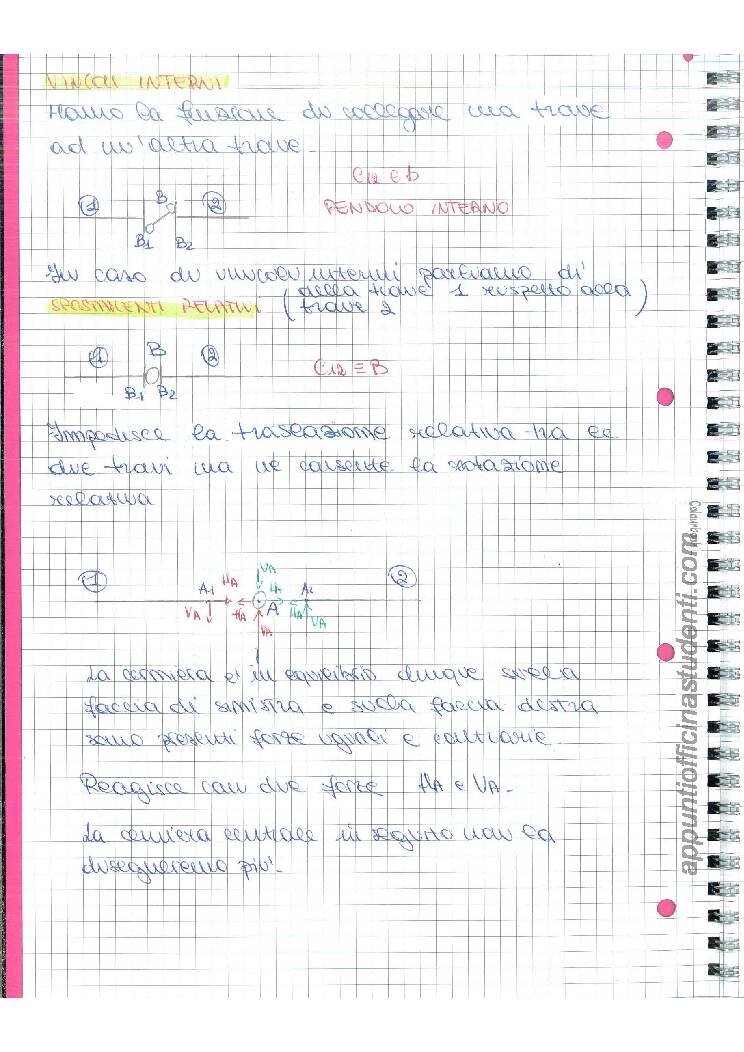 VINCOLI INTERNI
Hanno la funzione di collegare una trave
ad un'altra trave.
C12 ∈ b
① B ② PENDOLO INTERNO
B1 B2
In caso di vincoli interni parliamo di
SPOSTAMENTI RELATIVI ( della trave 1 rispetto alla trave 2 )
① B ② C12 ≡ B
B1 B2
Impedisce la traslazione relativa tra le
due travi ma ne consente la rotazione
relativa
VA
① A1 HA HA A2 ②
VA HA A HA VA
VA
La cerniera e' in equilibrio dunque sulla
faccia di sinistra e sulla faccia destra
sono presenti forze uguali e contrarie.
Reagisce con due forze HA e VA.
La cerniera centrale in seguito non la
disegneremo piu'.
appuntiofficinastudenti.com